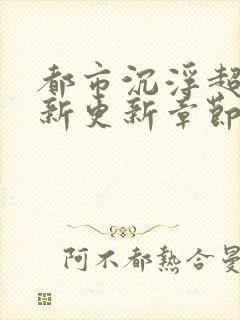 都市沉浮超
新更新章節
阿不都熱合曼